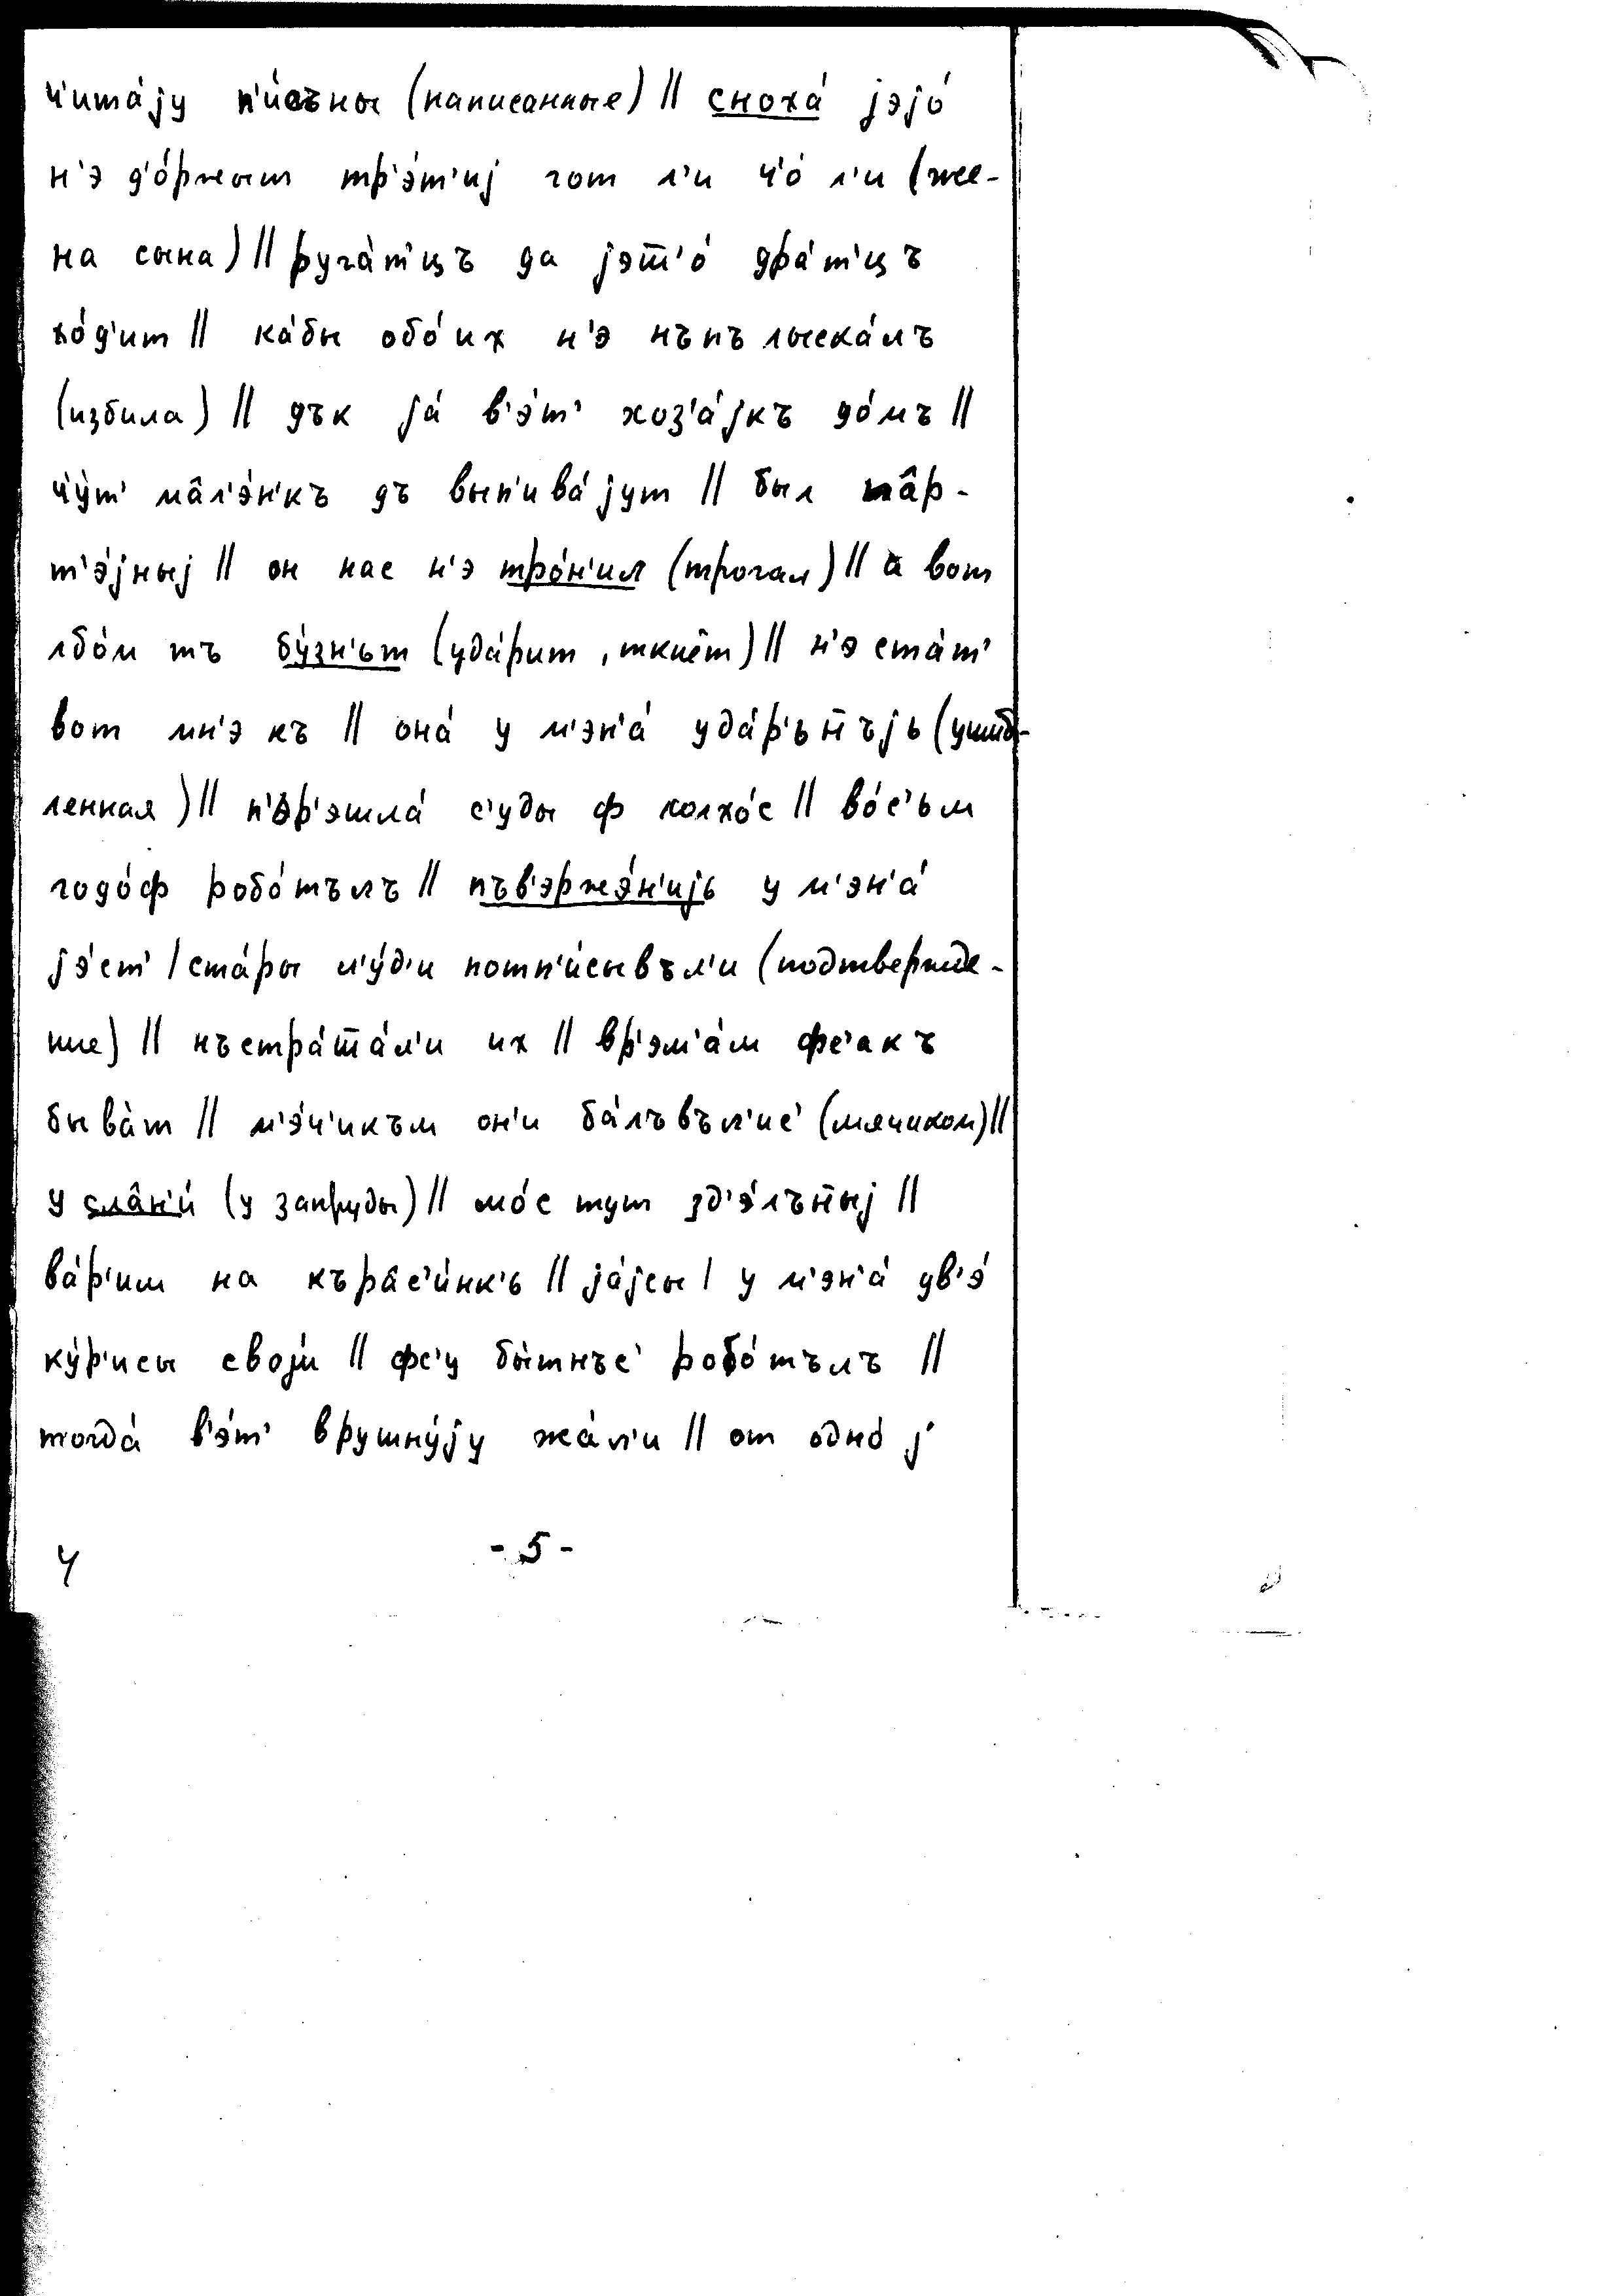 ч'ита́јy п'и́съны (написанные) || сноха́ јэјо́
н'э д'о́ржыт тр'э́т'иј гот л'и ч'о́ л'и (же-
на сына) || руга́т̄'цъ да јэт̄'о́ дра́т'цъ
хо́д'ит || ка́бы обо́их н'э нъпълыска́лъ
(избила) || дък ја́ в'э́т' хоз'а́јкъ до́мъ ||
ч'у́т' ма̂л'э́н'къ дъ вып'ива́јут || был па̂р-
т'э́јныј || он нас н'э тро́н'ил (трогал) || а вот
лбо́м тъ бу́зн'ьт (уда́рит, ткнёт) || н'э ста́т'
вот мн'э къ || она́ у м'эн'а́ уда́р'ьн̄ъјь (ушиб-
ленная) || п'эр'эшла́ с'уды ф колхо́с || во́с'ьм
годо́ф робо́тълъ || пъв'эржэ́н'ијь у м'эн'а́
јэ́ст' | ста́ры л'у́д'и потп'и́сывъл'и (подтвержде-
ние) || нъстра́т̄а́л'и их || вр'эм'а́м фс'акъ
быва́т || м'э́ч'икъм он'и ба́лъвъл'ис' (мячиком) ||
у сла̂н'и́ (у запруды) || мо́с тут зд'э́лън̄ыј ||
ва́р'им на кърас'и́нк'ь || ја́јсы | у м'эн'а́ дв'э́
ку́р'исы своји́ || фс'у бы́тнъс' робо́тълъ ||
тогда́ в'э́т' врушну́јy жа́л'и || от одно́ј
4 - 5 -